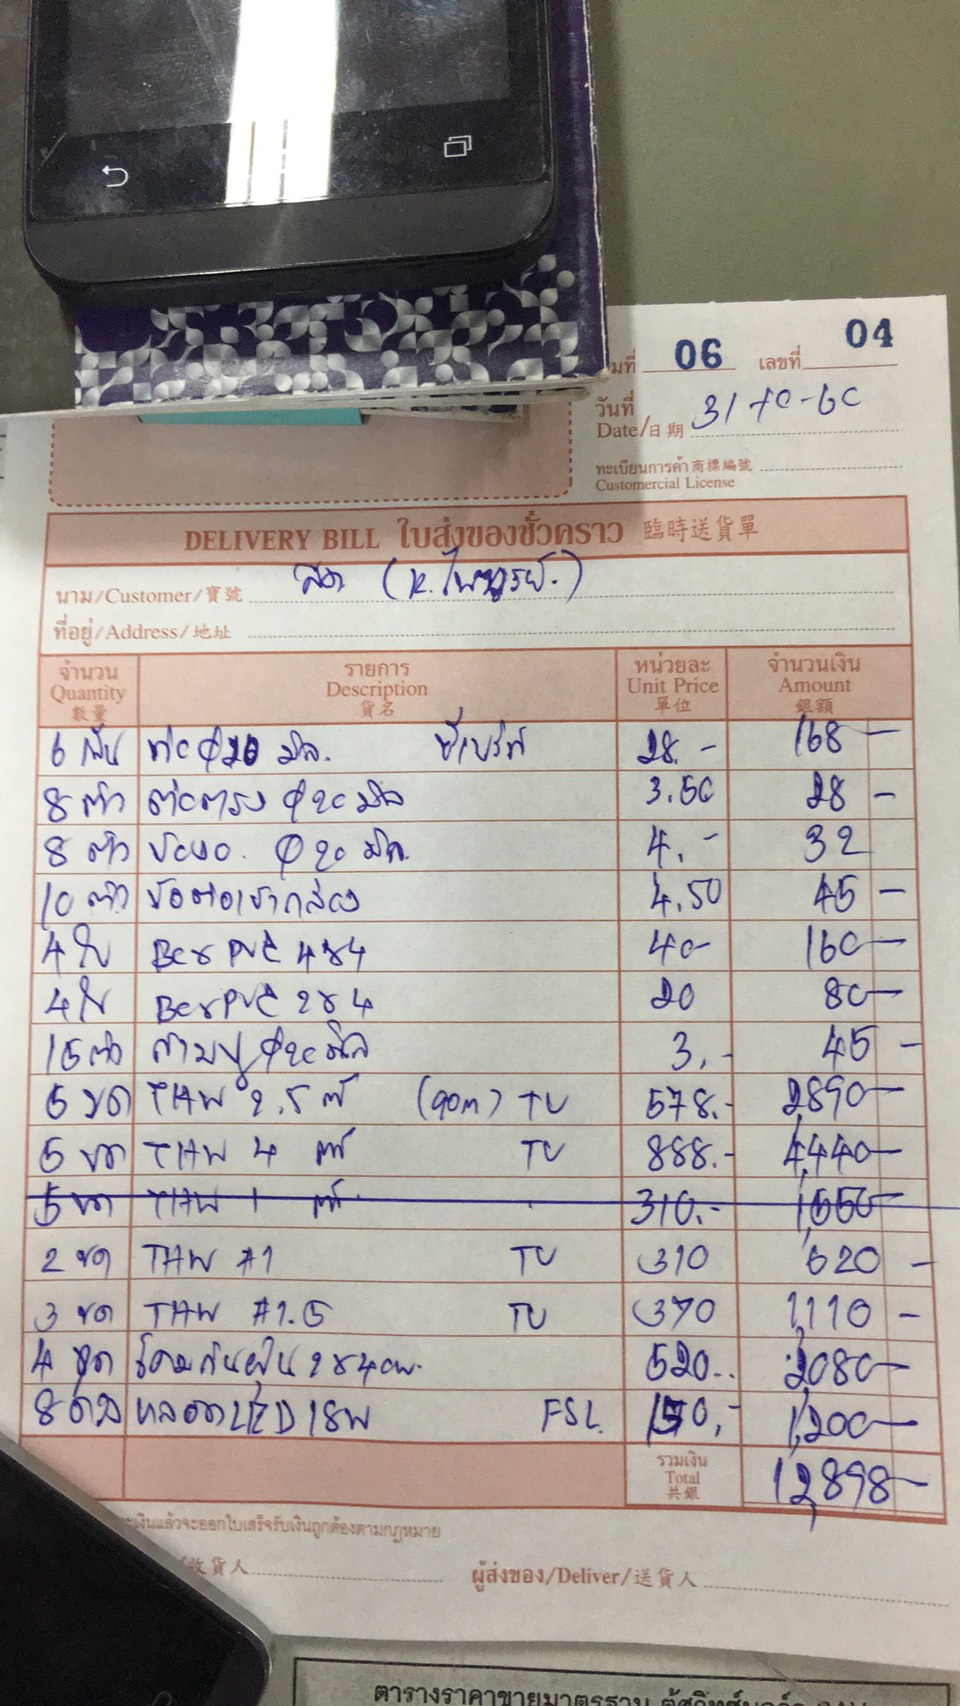 มที่ 06 เลขที่ 04
วันที่
Date/日期 31 +0-60
ทะเบียนการค้า 商標編號
Customercial License
DELIVERY BILL ใบส่งของชั่วคราว 臨時送貨單
นาม/Customer/寶號 สด (K.ไพฑูรย์.)
ที่อยู่/Address/地址
จำนวน รายการ หน่วยละ จำนวนเงิน
Quantity Description Unit Price Amount
數量 貨名 單位 銀額
6 เส้น ท่อ φ20 มิล. 28.- 168-
8 ตัว ต่อตรง φ20 มิล 3.50 28 -
8 ตัว ข้องอ. φ20 มิล. 4.- 32
10 ตัว ข้อต่อเข้ากล่อง 4.50 45 -
4 ใบ Box PVC 4x4 40- 160-
4 ใบ Box PVC 2x4 20 80-
15 ตัว ก้ามปู φ20 มิล 3.- 45 -
5 ขด THW 2.5 (90m) TU 578.- 2890-
5 ขด THW 4 TU 888.- 4,440-
5 ขด THW 1 310.- 1,550-
2 ขด THW #1 TU 310 620 -
3 ขด THW #1.5 TU 370 1,110 -
4 ชุด โคมกันฝุ่น 2x40w. 520.. 2080-
8 หลอด LED 18W FSL. 150.- 1,200-
รวมเงิน
Total
共銀 12,898-
ะเงินแล้วจะออกใบเสร็จรับเงินถูกต้องตามกฎหมาย
/收貨人 ผู้ส่งของ/Deliver/送貨人